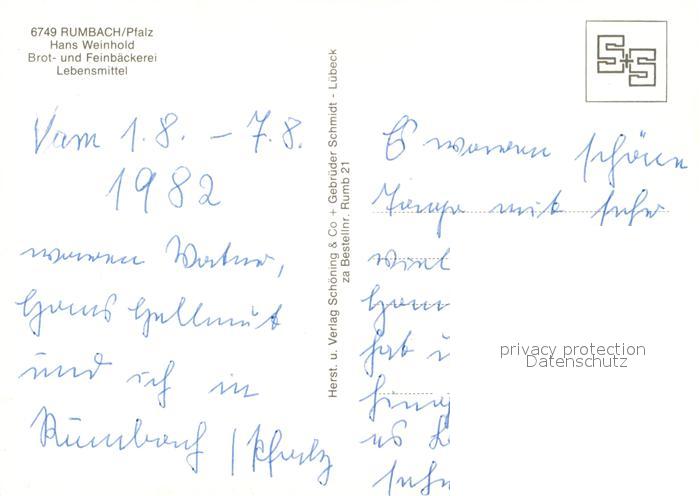 6749 RUMBACH/Pfalz
Hans Weinhold
Brot- und Feinbäckerei
Lebensmittel
S+S
Vom 1.8. – 7.8.
1982
waren
Hans Hellmut
und ich in
Rumbach / Pfalz
Herst. u. Verlag Schöning & Co + Gebrüder Schmidt - Lübeck
za Bestellnr. Rumb 21
Es waren schöne
Tage mit sehr
viel
hab
es
sehr
privacy protection
Datenschutz